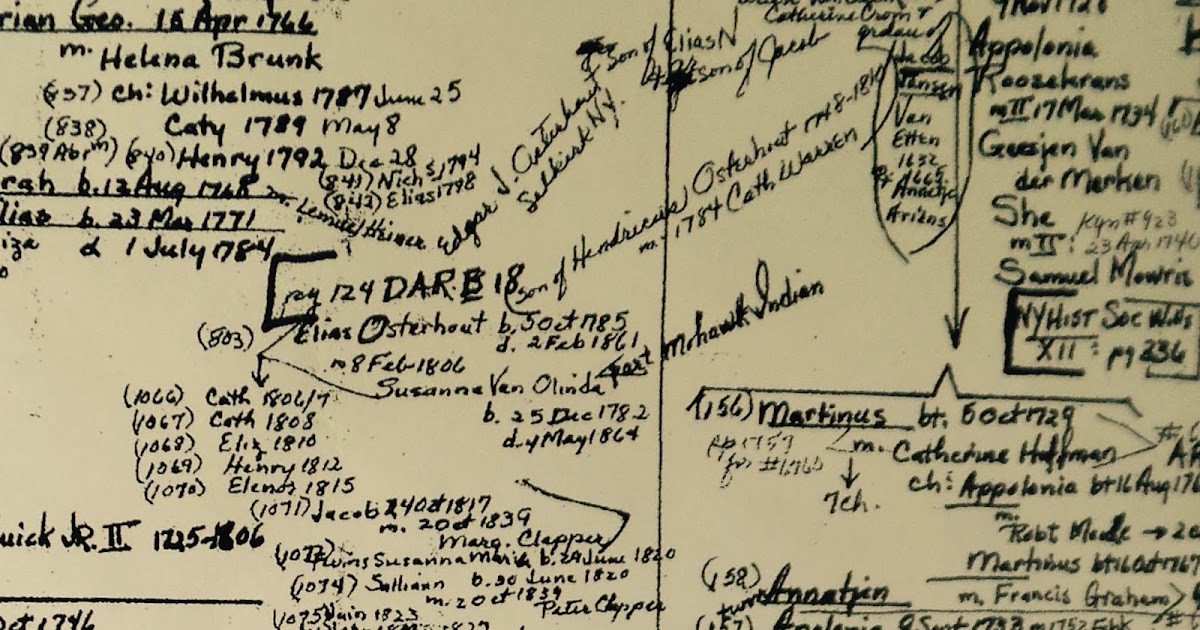 rian Geo. 15 Apr 1766
m. Helena Brunk
(837) ch: Wilhelmus 1787 June 25
(838) Caty 1789 May 8
(839 Abrm) (840) Henry 1792 Dec 28
(841) Nichs 1794
(842) Elias 1798
rah b. 12 Aug 1768
m. Lemuel
lias b. 23 Mar 1771
iza d 1 July 1784
Edgar J. Osterhoudt
Selkirk N.Y.
son of Elias N
son of Jacob
pg 124 DAR.B 18
(son of Hendricus Osterhout 1748-181
m. 1784 Cath Warren
(803) Elias Osterhout b. 5 Oct 1785
d. 2 Feb 1861
m 8 Feb 1806
Susanna Van Olinda
part Mohawk Indian
b. 25 Dec 1782
d. 4 May 1864
(1066) Cath 1806/7
(1067) Cath 1808
(1068) Eliz 1810
(1069) Henry 1812
(1070) Elenor 1815
(1071) Jacob 24 Oct 1817
m. 20 Oct 1839
Marg. Clapper
(1072) Twins Susanna Maria b. 29 June 1820
(1074) Salliann b. 30 June 1820
m. 2 Oct 1839
Peter Clapper
(1075) 1823
uick JR. II 1725-1806
Oct 1746
Catherine Crom
Jacob
Jansen
Van
Etten
1632
1665
Arians
9 Nov 1728
Appolonia
Roosekrans
m II 17 Mar 1734
Geesjen Van
der Merken
She Kgn #923
m II: 23 Apr 1746
Samuel Mowris
NYHist Soc Wills
XII : pg 236
(156) Martinus bt. 5 Oct 1729
m. Catherine Hoffman
7ch.
ch: Appolonia bt 16 Aug 176
m.
Robt Meade → 20
Martinus bt 16 Oct 1767
m. Francis Graham
(158) Annatjen
(157) Apolonia 9 Sept 1733 m 1752